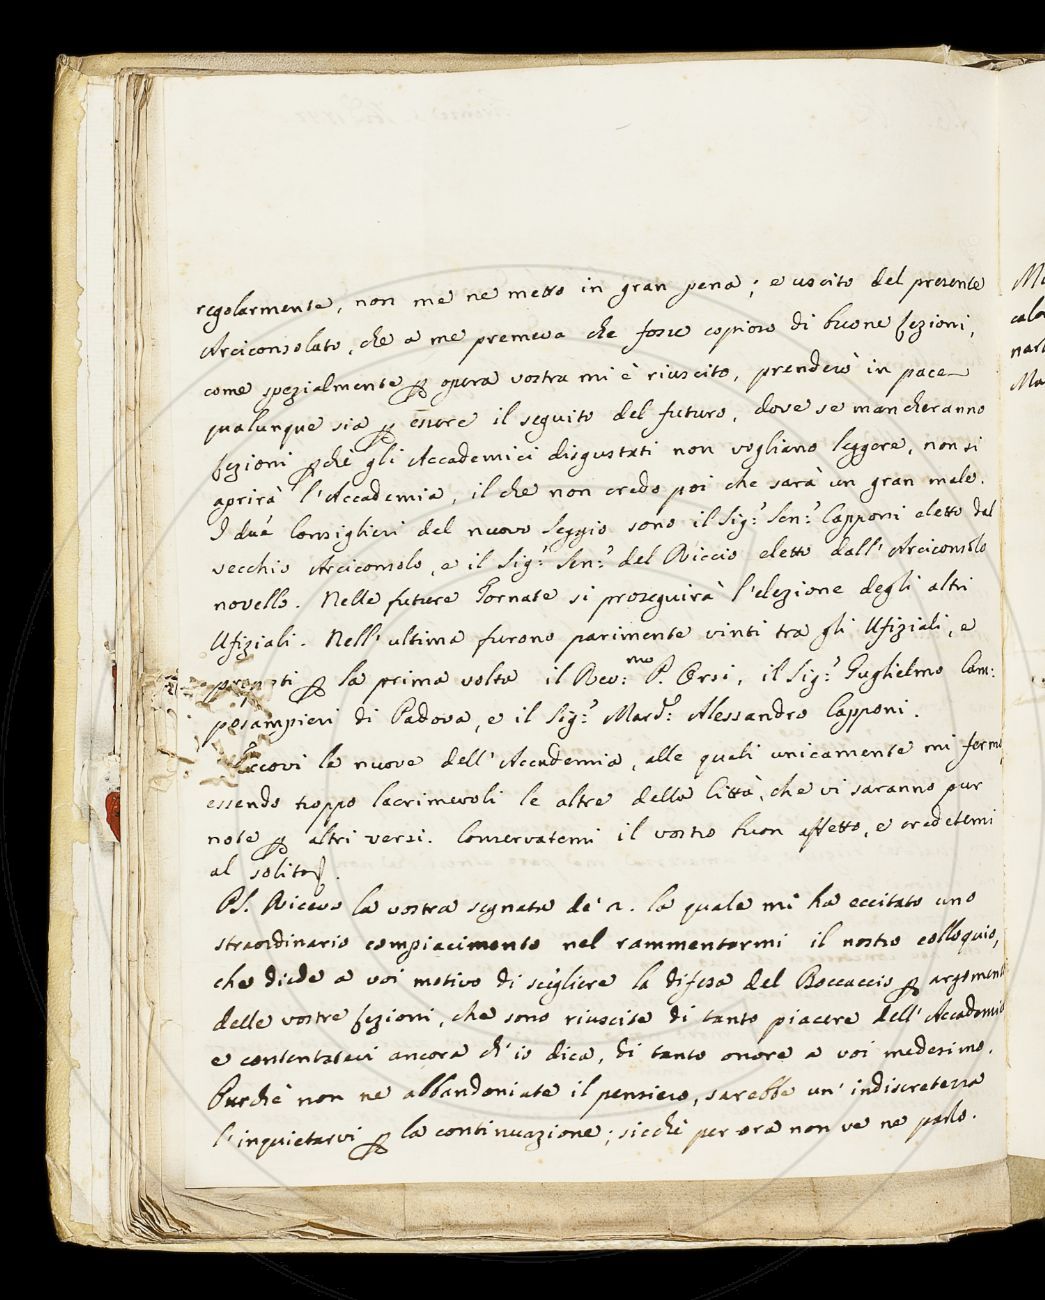 regolarmente, non me ne metto in gran pena; e uscito del presente
Arciconsolato, che a me premeva che fosse copioso di buone lezioni,
come spezialmente ꝑ opera vostra mi è riuscito, prenderò in pace
qualunque sia ꝑ essere il seguito del futuro, dove se mancheranno
lezioni ꝑchè gli Accademici disgustati non vogliano leggere, non si
aprirà l'Accademia, il che non credo poi che sarà un gran male.
I due Consiglieri del nuovo Seggio sono il Sig.r Sen.r Capponi eletto dal
vecchio Arciconsolo, e il Sig.r Sen.r del Riccio eletto dall'Arciconsolo
novello. Nelle future Tornate si proseguirà l'elezione degli altri
Ufiziali. Nell'ultima furono parimente vinti tra gli Ufiziali, e
proposti ꝑ la prima volta il Rev:mo P. Orsi, il Sig.r Guglielmo Cam:
posampieri di Padova, e il Sig.r March: Alessandro Capponi.
Eccovi le nuove dell'Accademia, alle quali unicamente mi fermo,
essendo troppo lacrimevoli le altre della Città, che vi saranno pur
note ꝑ altri versi. Conservatemi il vostro buon affetto, e credetemi
al solito.
P.S. Ricevo la vostra segnata de' 2. la quale mi ha eccitato uno
straordinario compiacimento nel rammentarmi il nostro colloquio,
che diede a voi motivo di scegliere la difesa del Boccaccio ꝑ argomento
delle vostre lezioni, che sono riuscite di tanto piacere dell'Accademia
e contentatevi ancora ch'io dica, di tanto onore a voi medesimo.
Purchè non ne abbandoniate il pensiero, sarebbe un'indiscretezza
l'inquietarvi ꝑ la continuazione; sicchè per ora non ve ne parlo.